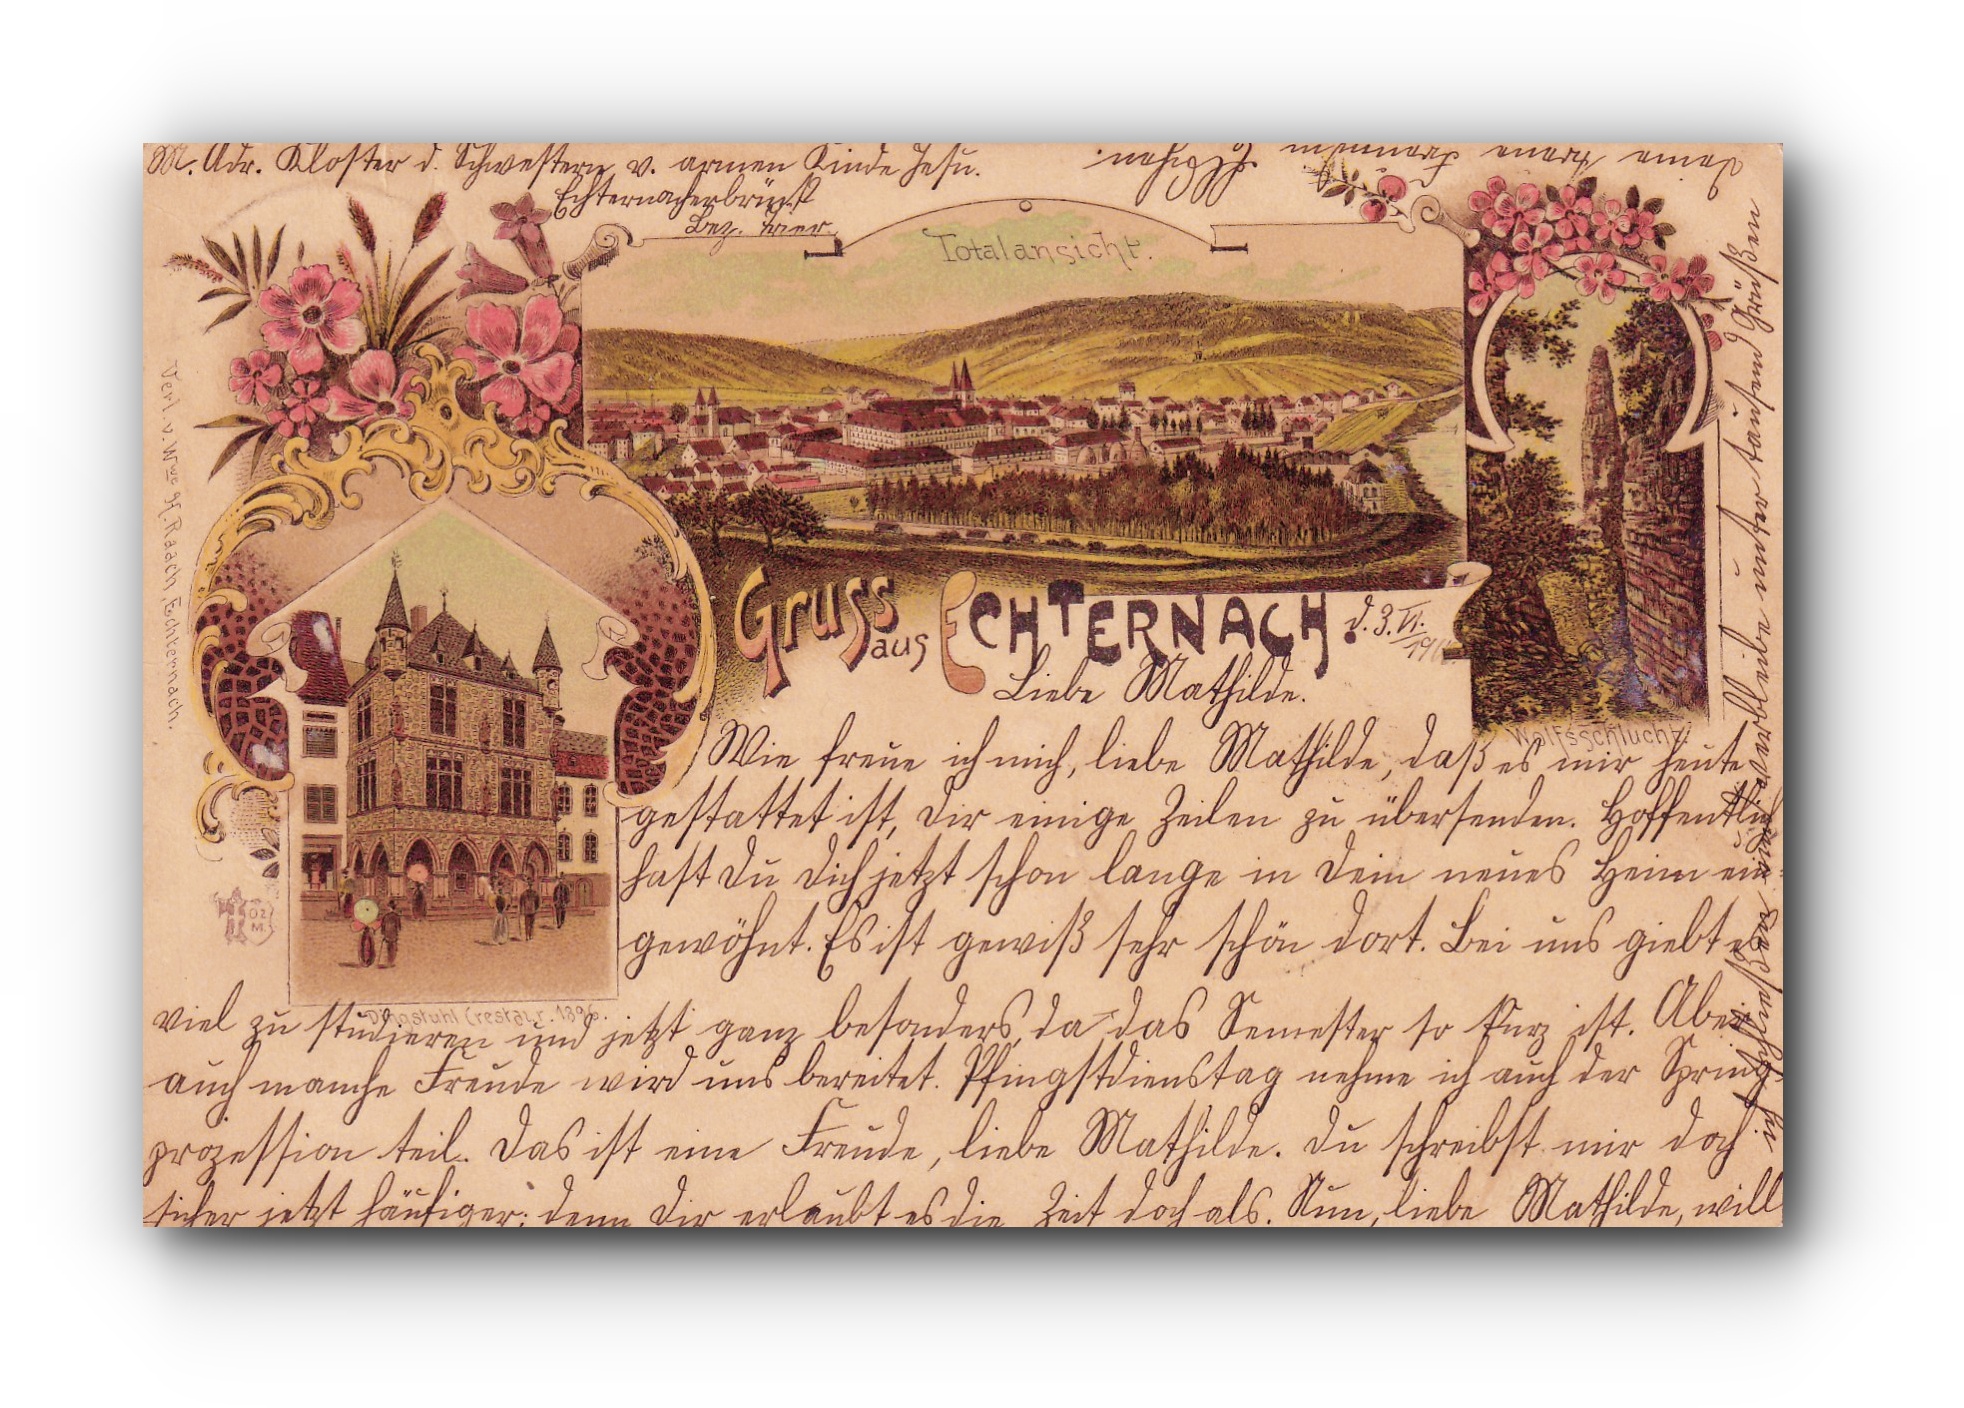 M. Adr. Kloster d. Schwestern v. armen Kinde Jesu.
Echternacherbrück
Bez. Trier.
Totalansicht.
Verl. v. Wwe H. Raach, Echternach.
Gruss aus Echternach. d. 3. VI.
Liebe Mathilde.
Wolfsschlucht.
Wie freue ich mich, liebe Mathilde, daß es mir heute
gestattet ist, Dir einige Zeilen zu übersenden. Hoffentlich
hast Du Dich jetzt schon lange in Dein neues Heim ein-
gewöhnt. Es ist gewiß sehr schön dort. Bei uns giebt es
Dingstuhl (restaur. 1896.
viel zu studieren und jetzt ganz besonders, da das Semester so kurz ist. Aber
auch manche Freude wird uns bereitet. Pfingstdienstag nehme ich auch der Spring-
prozession teil. Das ist eine Freude, liebe Mathilde. Du schreibst mir doch
sicher jetzt häufiger; denn Dir erlaubt es die Zeit doch als. Nun, liebe Mathilde, will
ich schließen und verbleibe unter tausend Grüßen
Deine treue Freundin